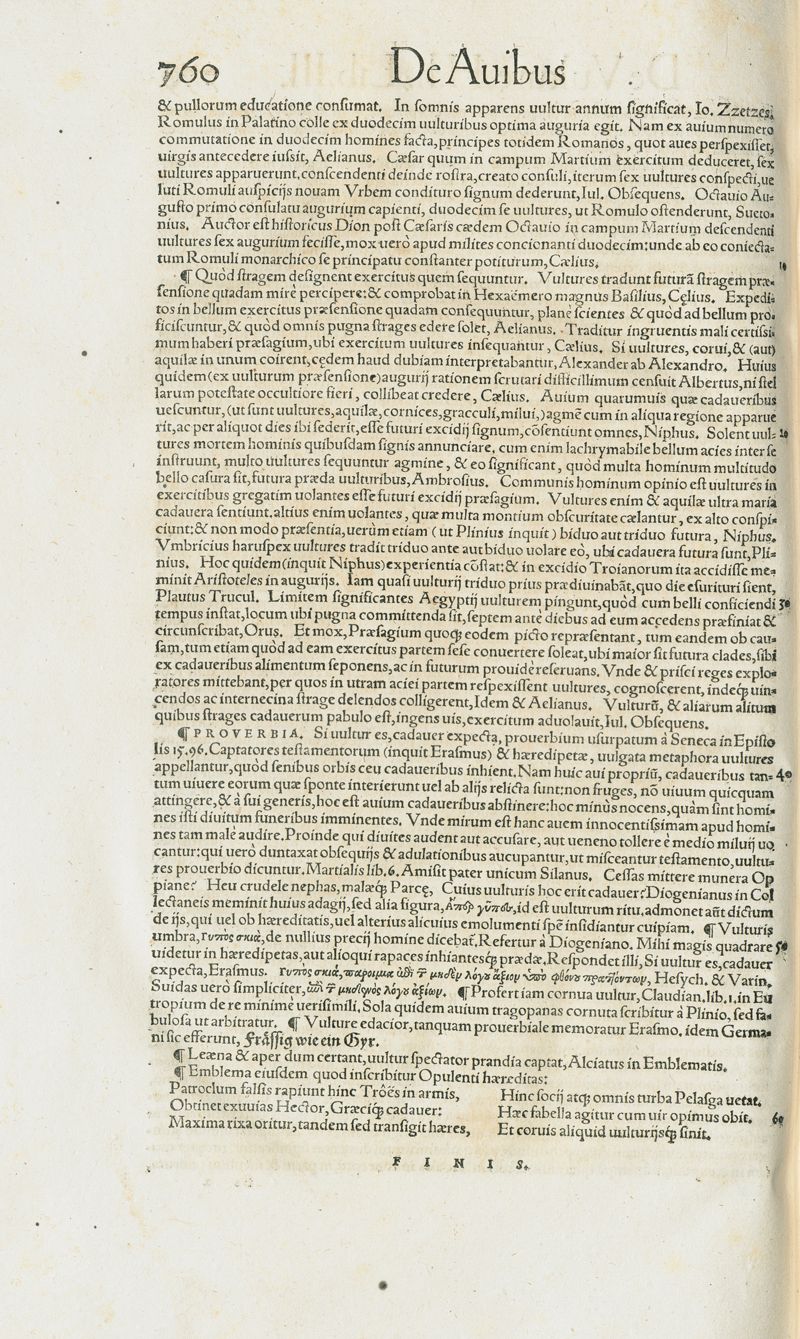 760 De Auibus
& pullorum educatione consumat. In somnis apparens uultur annum significat, Io. Zzetzes.
Romulus in Palatino colle ex duodecim uulturibus optima auguria egit. Nam ex auium numero
commutatione in duodecim homines facta, principes totidem Romanos, quot aues perspexisset,
uirgis antecedere iussit, Aelianus. Cæsar quum in campum Martium exercitum deduceret, sex
uultures apparuerunt.conscendenti deinde rostra, creato consuli, iterum sex uultures conspecti, ue
luti Romuli auspicijs nouam Vrbem condituro signum dederunt, Iul. Obsequens. Octauio Au-
gusto primo consulatu augurium capienti, duodecim se uultures, ut Romulo ostenderunt, Sueto-
nius. Auctor est historicus Dion post Cæsaris cædem Octauio in campum Martium descendenti
uultures sex augurium fecisse, mox uero apud milites concionanti duodecim: unde ab eo coniecta-
tum Romuli monarchico se principatu constanter potiturum, Cælius. 10
¶ Quòd stragem designent exercitus quem sequuntur. Vultures tradunt futurā stragem præ-
sensione quadam mirè percipere: & comprobat in Hexaëmero magnus Basilius, Cęlius. Expedi-
tos in bellum exercitus præsensione quadam consequuntur, planè scientes & quòd ad bellum pro-
ficiscuntur, & quòd omnis pugna strages edere solet, Aelianus. Traditur ingruentis mali certissi-
mum haberi præsagium, ubi exercitum uultures insequantur, Cælius. Si uultures, corui, & (aut)
aquilæ in unum coirent, cędem haud dubiam interpretabantur, Alexander ab Alexandro. Huius
quidem (ex uulturum præsensione) augurij rationem scrutari difficillimum censuit Albertus, ni stel
larum potestate occultiore fieri, collibeat credere, Cælius. Auium quarumuis quæ cadaueribus
uescuntur, (ut sunt uultures, aquilæ, cornices, gracculi, milui,) agmē cum in aliqua regione apparue
rit, ac per aliquot dies ibi sederit, esse futuri excidij signum, cōsentiunt omnes, Niphus. Solent uul- 20
tures mortem hominis quibusdam signis annunciare. cum enim lachrymabile bellum acies inter se
instruunt, multo uultures sequuntur agmine, & eo significant, quòd multa hominum multitudo
bello casura sit, futura præda uulturibus, Ambrosius. Communis hominum opinio est uultures in
exercitibus gregatim uolantes esse futuri excidij præsagium. Vultures enim & aquilæ ultra maria
cadauera sentiunt. altius enim uolantes, quæ multa montium obscuritate cælantur, ex alto conspi-
ciunt: & non modo præsentia, uerùm etiam (ut Plinius inquit) biduo aut triduo futura, Niphus.
Vmbricius haruspex uultures tradit triduo ante aut biduo uolare eò, ubi cadauera futura sunt, Pli-
nius. Hoc quidem (inquit Niphus) experientia cōstat: & in excidio Troianorum ita accidisse me-
minit Aristoteles in augurijs. Iam quasi uulturij triduo prius prædiuinabāt, quo die esurituri sient,
Plautus Trucul. Limitem significantes Aegyptij uulturem pingunt, quòd cum belli conficiendi 30
tempus instat, locum ubi pugna committenda sit, septem antè diebus ad eum accedens præfiniat &
circunscribat, Orus. Et mox, Præsagium quoq; eodem picto repræsentant, tum eandem ob cau-
sam, tum etiam quòd ad eam exercitus partem sese conuertere soleat, ubi maior sit futura clades, sibi
ex cadaueribus alimentum seponens, ac in futurum prouidè reseruans. Vnde & prisci reges explo-
ratores mittebant, per quos in utram aciei partem respexissent uultures, cognoscerent, indeq; uin-
cendos ac internecina strage delendos colligerent, Idem & Aelianus. Vulturū, & aliarum alitum
quibus strages cadauerum pabulo est, ingens uis, exercitum aduolauit, Iul. Obsequens.
¶ PROVERBIA. Si uultur es, cadauer expecta, prouerbium usurpatum à Seneca in Episto
lis 15.96. Captatores testamentorum (inquit Erasmus) & hæredipetæ, uulgata metaphora uultures
appellantur, quòd senibus orbis ceu cadaueribus inhient. Nam huic aui propriū, cadaueribus tan- 40
tum uiuere eorum quæ sponte interierunt uel ab alijs relicta sunt: non fruges, nō uiuum quicquam
attingere, & à sui generis, hoc est auium cadaueribus abstinere: hoc minùs nocens, quàm sint homi-
nes isti diuitum funeribus imminentes. Vnde mirum est hanc auem innocentissimam apud homi-
nes tam male audire. Proinde qui diuites audent aut accusare, aut ueneno tollere è medio miluij uo
cantur: qui uero duntaxat obsequijs & adulationibus aucupantur, ut misceantur testamento, uultu-
res prouerbio dicuntur. Martialis lib. 6. Amisit pater unicum Silanus. Cessas mittere munera Op
piane? Heu crudele nephas, malæq; Parcę, Cuius uulturis hoc erit cadauer? Diogenianus in Col
lectaneis meminit huius adagij, sed alia figura, id est uulturum ritu. admonet aūt dictum
de ijs, qui uel ob hæreditatis, uel alterius alicuius emolumenti spē insidiantur cuipiam. ¶ Vulturis
umbra, γυπὸς σκιά, de nullius precij homine dicebat̃, Refertur à Diogeniano. Mihi magis quadrare 50
uidetur in hæredipetas, aut alioqui rapaces inhiantesq; prædæ. Respondet illi, Si uultur es, cadauer
expecta, Erasmus. γυπὸς σκιά, παροιμία ἐπὶ τ̃ μηδενὸς λόγου ἄξιον ὑπὸ φθόνου πραττόντων, Hesych. & Varin.
Suidas uero simpliciter, ἐπὶ τ̃ μηδενὸς λόγου ἀξίων. ¶ Profert iam cornua uultur, Claudian. lib. 1. in Eu
tropium de re minimè uerisimili. Sola quidem auium tragopanas cornuta scribitur à Plinio, sed fa-
bulosa ut arbitratur. ¶ Vulture edacior, tanquam prouerbiale memoratur Erasmo. idem Germa-
ni sic efferunt, Frässig wie ein Gyr.
¶ Leæna & aper dum certant, uultur spectator prandia captat, Alciatus in Emblematis.
¶ Emblema eiusdem quod inscribitur Opulenti hæreditas:
Patroclum falsis rapiunt hinc Trôës in armis, Hinc socij atq; omnis turba Pelasga uetat.
Obtinet exuuias Hector, Græciq; cadauer: Hæc fabella agitur cum uir opimus obit. 60
Maxima rixa oritur, tandem sed transigit hæres, Et coruis aliquid uulturijsq; sinit.
FINIS.